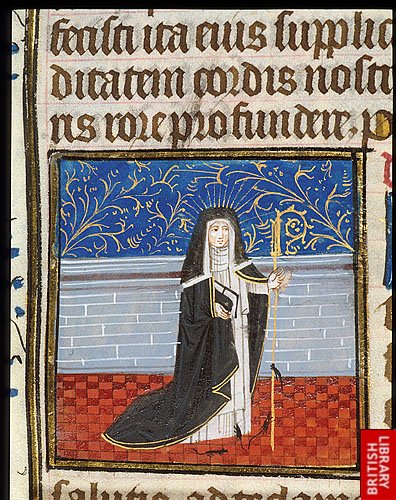 fecisti ita eius supplic
ditatem cordis nostr
ns rore profundere. p
BRITISH
LIBRARY